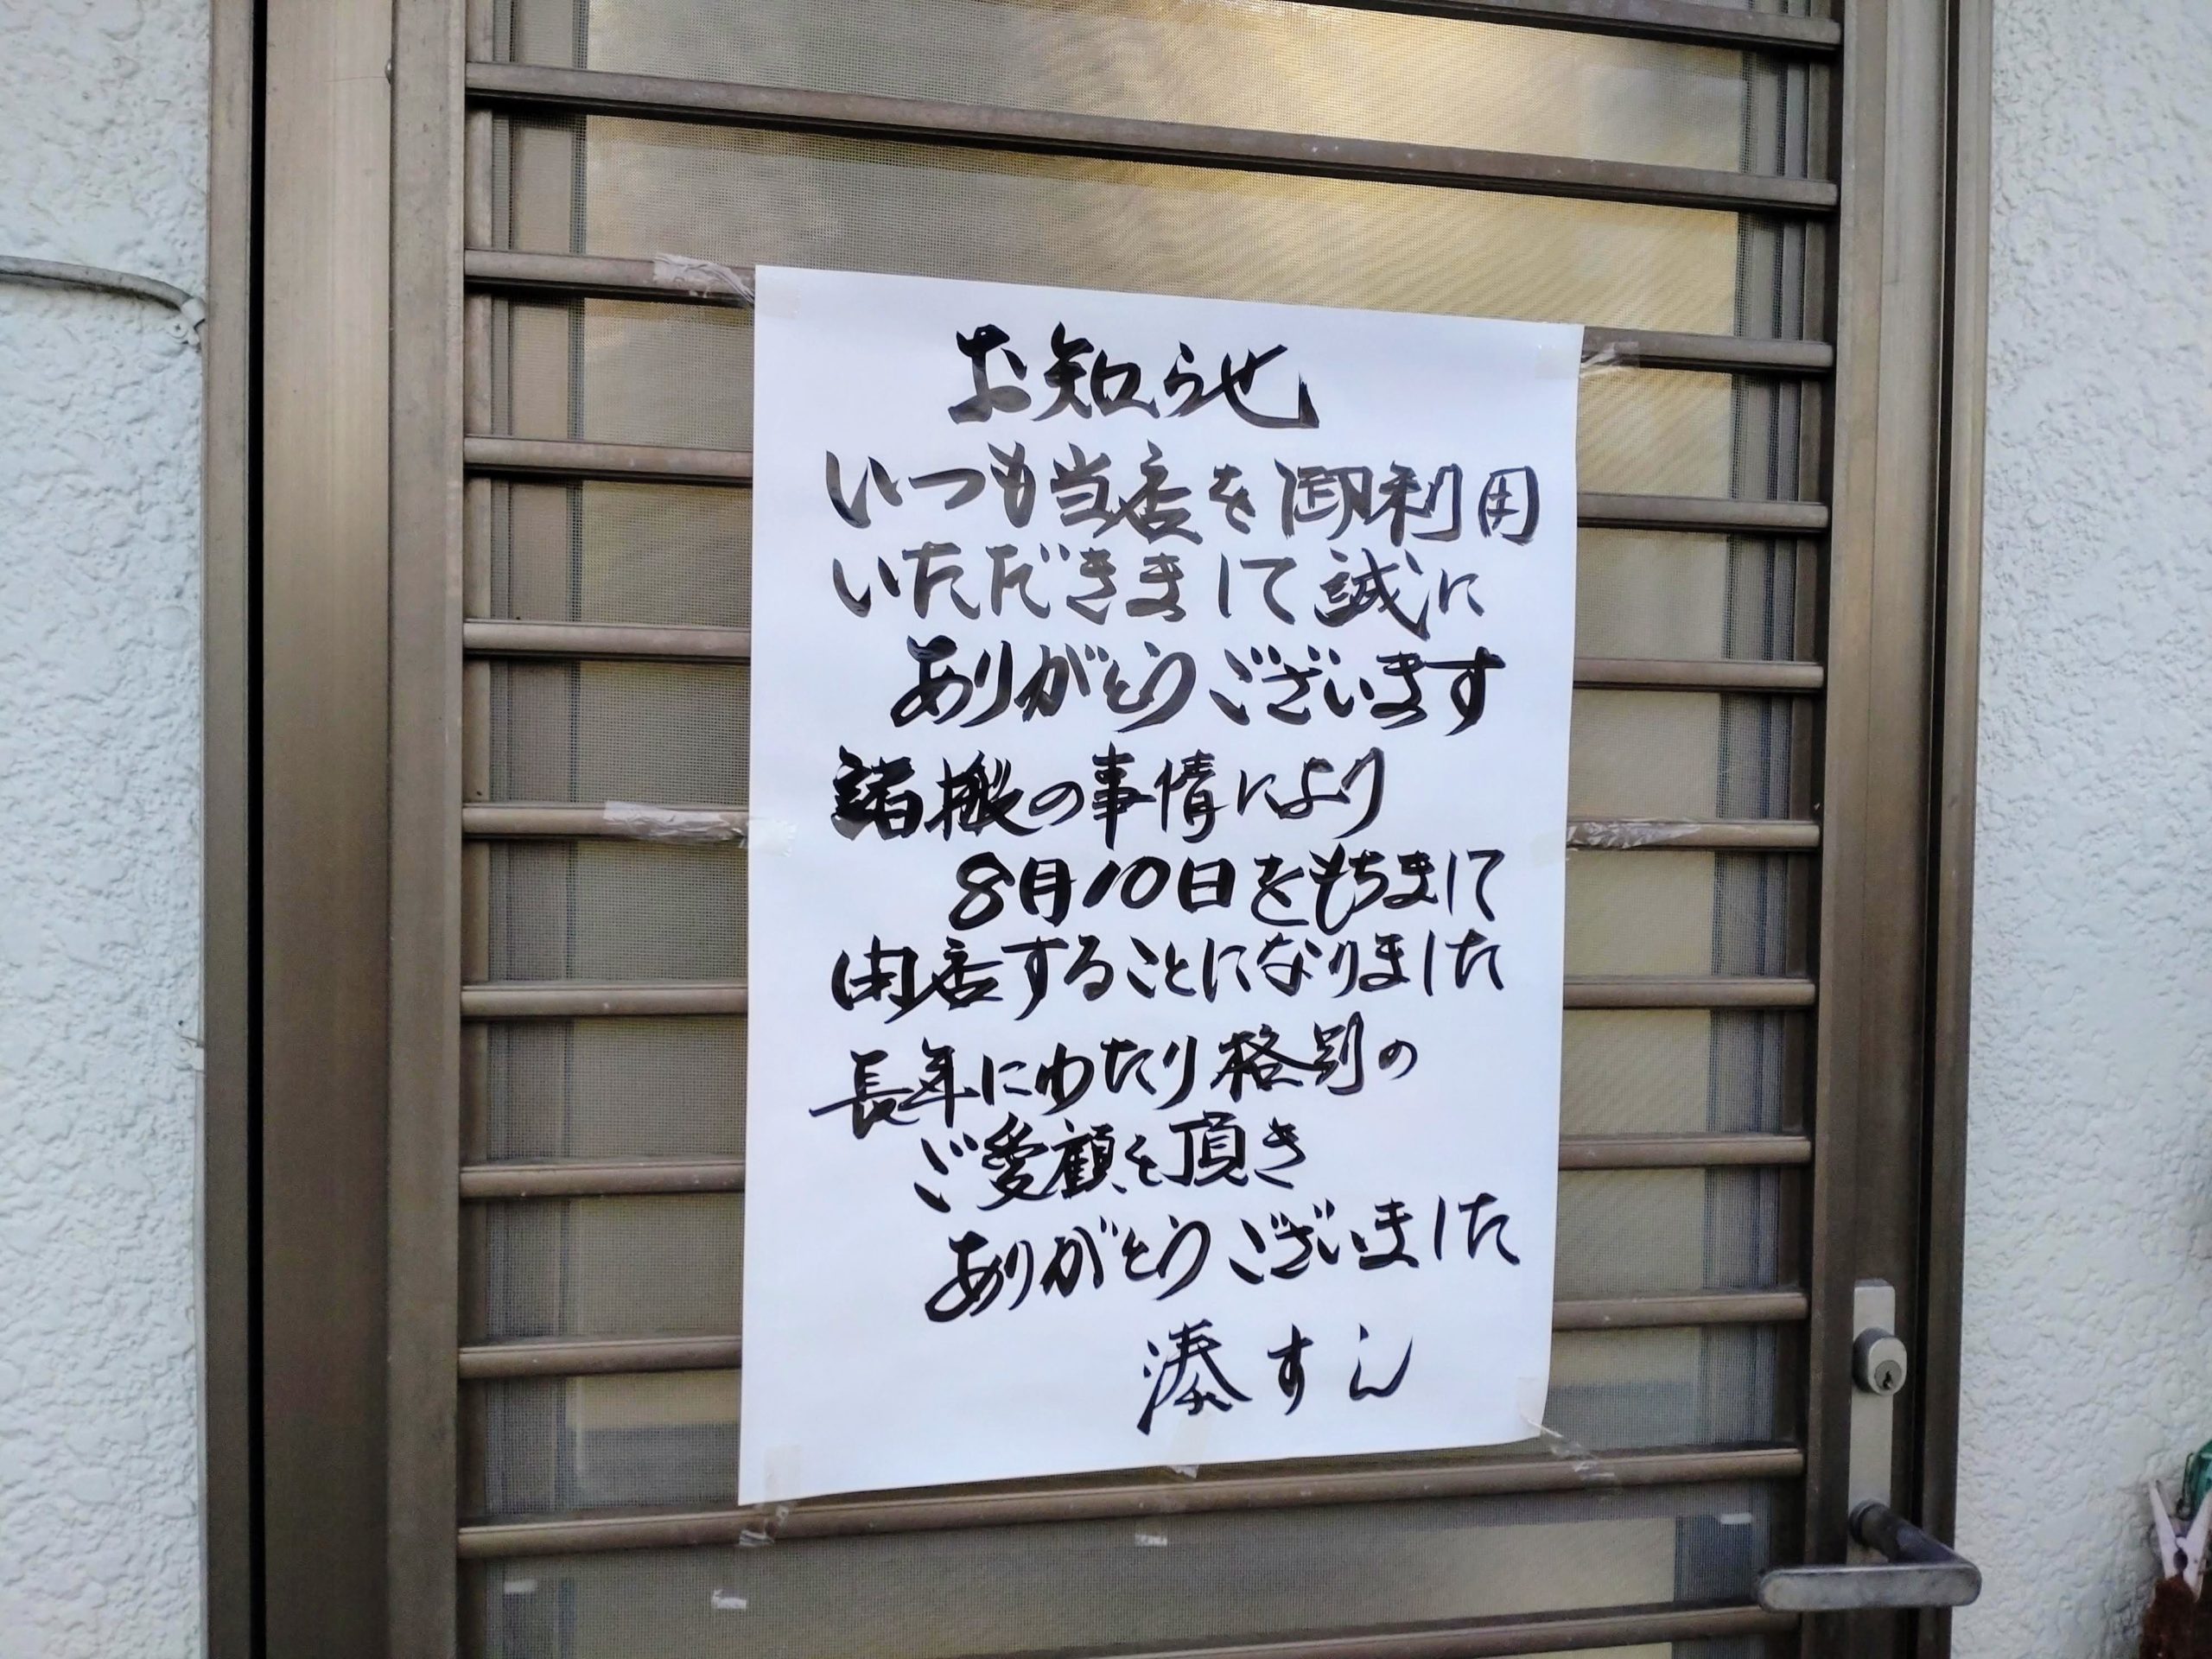 お知らせ
いつも当店を御利用
いただきまして誠に
ありがとうございます
諸般の事情により
8月10日をもちまして
閉店することになりました
長年にわたり格別の
ご愛顧を頂き
ありがとうございました
湊すし